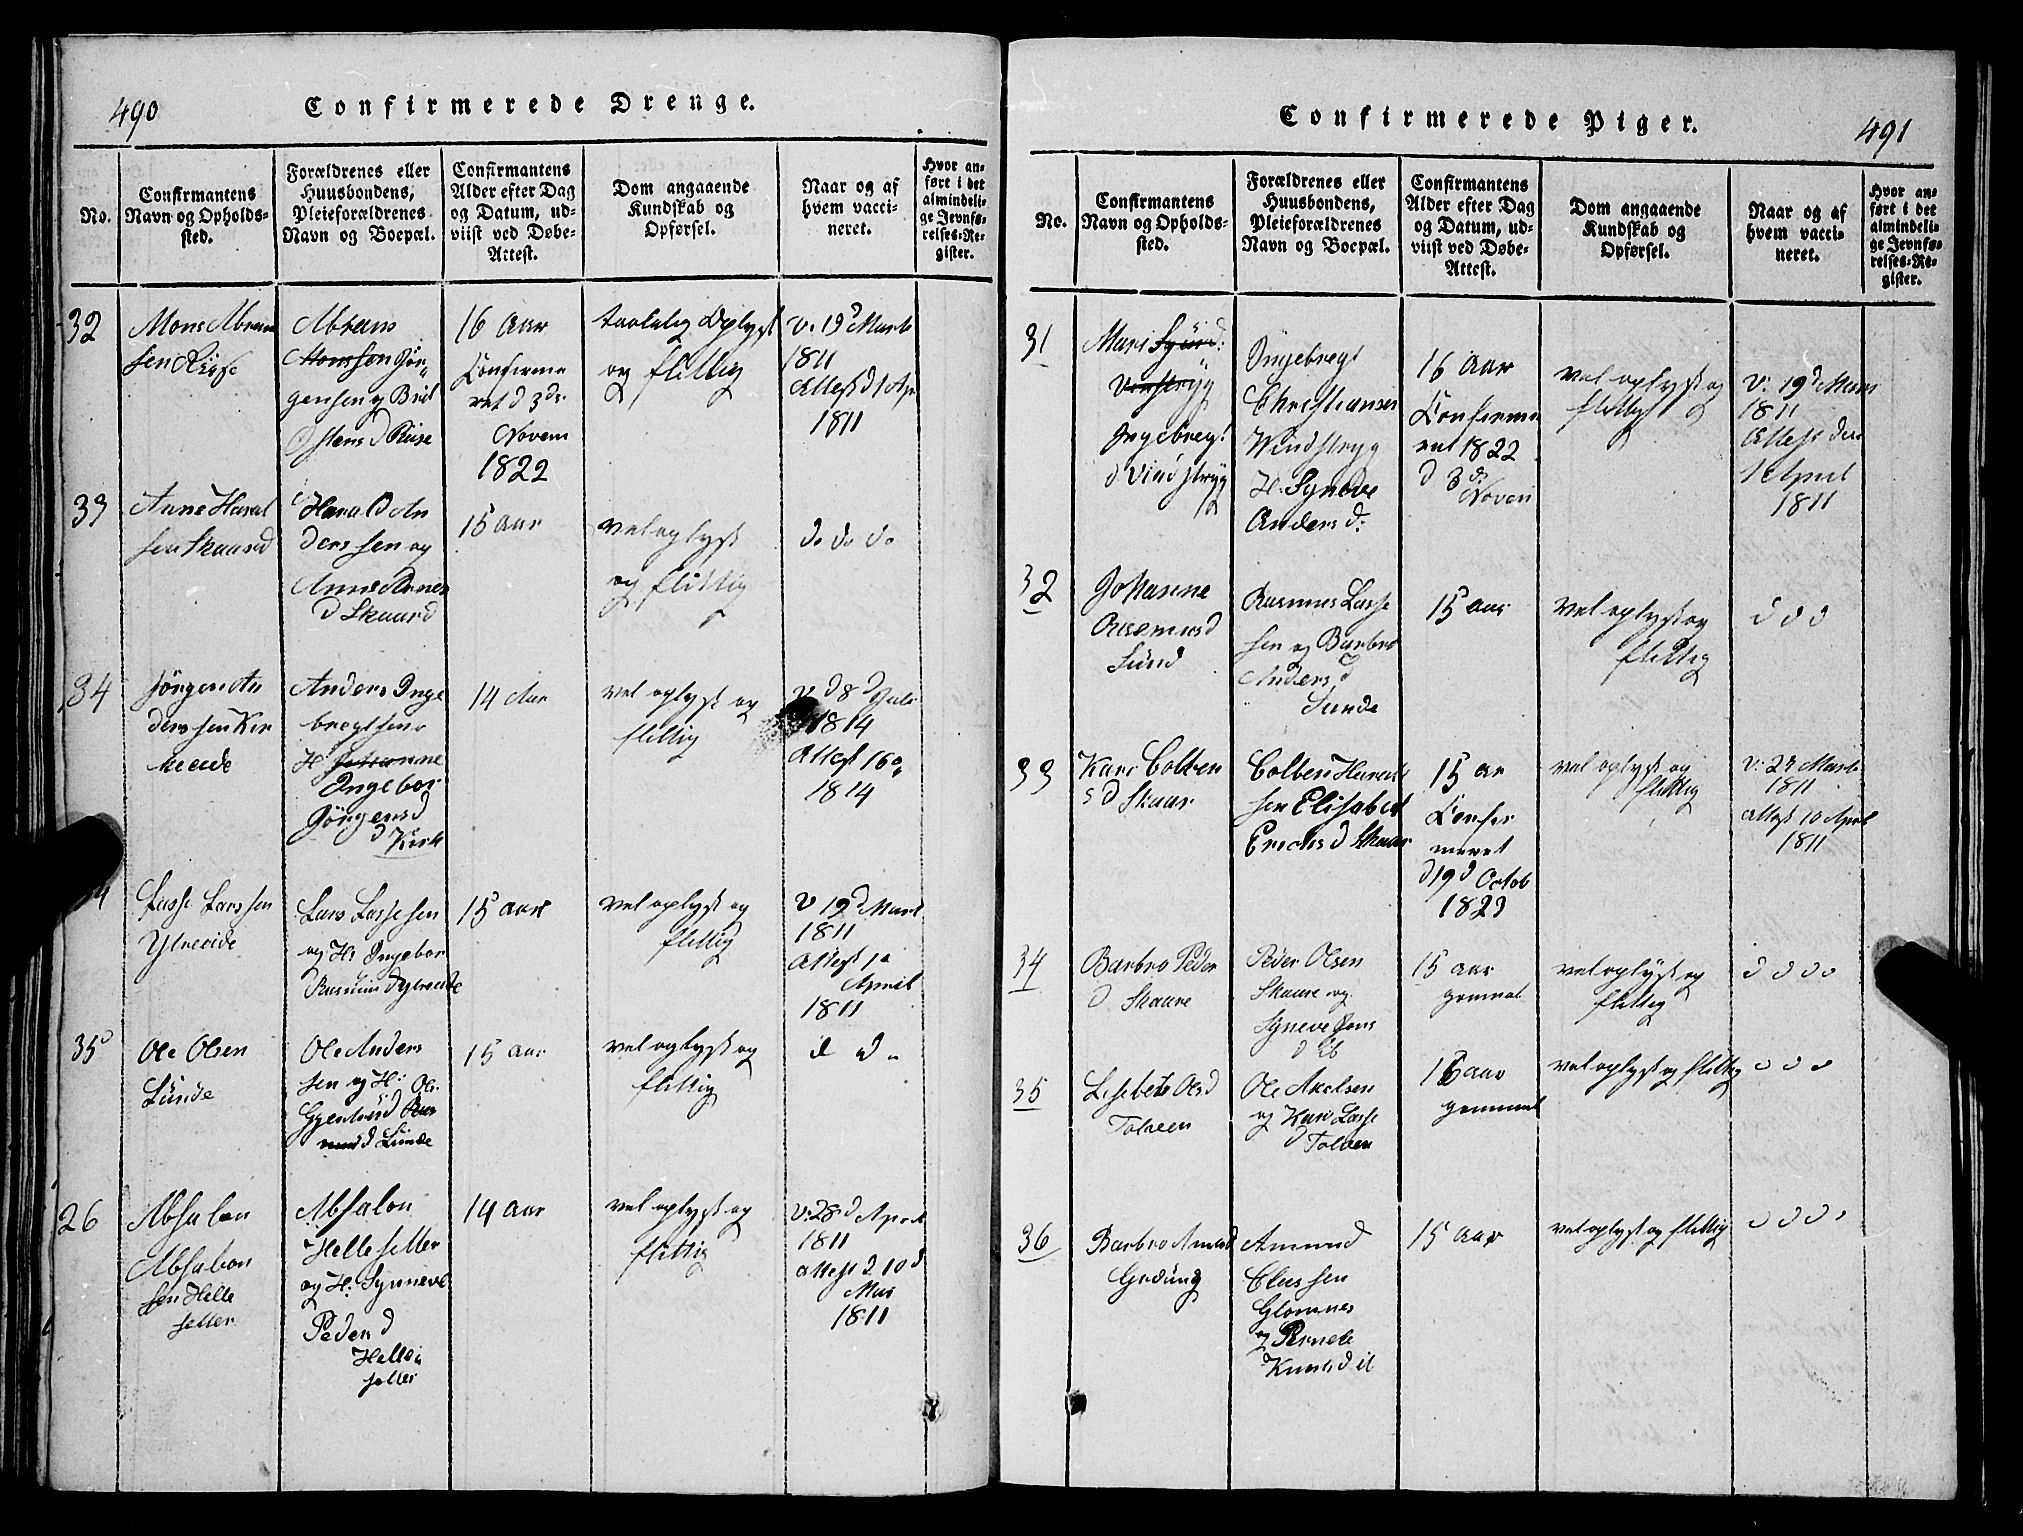 490
Confirmerede Drenge.
No.
Confirmantens
Navn og Opholds-
sted.
Forældrenes eller
Huusbondens,
Pleieforældrenes
Navn og Boepæl.
Confirmantens
Alder efter Dag
og Datum, ud-
viist ved Døbe-
Attest.
Dom angaaende
Kundskab og
Opførsel.
Naar og af
hvem vacci-
neret.
Hvor an-
ført i det
almindeli-
ge Jevnfø-
relses-Re-
gister.
32
Mons Abram
sen
Abram
Monsen Jør
gensen og Brit
d Riise
16 Aar
Confirme
ret d 3de
Novem
1822
taalelig Oplyst
og flittig
V. 19d Marts
1811
Attest d 1 Apr
1811
33
Anne Haral
sen Skaard
Harald An
derssen og
Anne Arnes
d Skaard
15 Aar
vel oplyst
og flittig
do do do
34
Jørgen An
derssen Kir
keeide
Anders Inge
bregtsen
H. Johanne
Ingebor
Jørgensd
d Kirk
14 Aar
vel oplyst og
flittig
V d 8d Juli
1814
Attest 16
1814
4
Lasse Larssen
Ytreeide
Lars Lassesen
og H. Ingebor
Rasmus d Ytreeide
15 Aar
vel oplyst og
flittig
V 19d Mart
1811
Attest 1
April
1811
35
Ole Olsen
Lunde
Ole Anders
sen og H:
Gjertrud Ras
musd Lunde
15 Aar
vel oplyst og
flittig
d do
26
Absalon
Absalon
sen Helle
setter
Absalon
Hellesetter
og H. Synneve
Peder d
Helle
setter
14 Aar
vel oplyst og
flittig
V. 28d April
1811
Attest d 10d
Mai
1811
Confirmerede Piger.
491
No.
Confirmantens
Navn og Opholds-
sted.
Forældrenes eller
Huusbondens,
Pleieforældrenes
Navn og Boepæl.
Confirmantens
Alder efter Dag
og Datum, ud-
viist ved Døbe-
Attest.
Dom angaaende
Kundskab og
Opførsel.
Naar og af
hvem vacci-
neret.
Hvor an-
ført i det
almindeli-
ge Jevnfø-
relses-Re-
gister.
31
Mari
Vinstryg
Ingebregt
d Vindstryg
Ingebregt
Christiansen
Windstryg
H. Syneve
Anders d:
16 Aar
Confirme
ret 1822
d 3de
Novem
vel oplyst og
flittig
V. 19d Mars
1811
Attest den
1 April
1811
32
Johanne
Rasmusd
Sund
Rasmus Lasse
sen og Barbro
Anders d
Sunde
15 Aar
vel oplyst og
flittig
d d d
33
Kari Colben
s d Skaar
Colben Harald
sen Elisabet
Erichs d Skaar
15 Ar
Confir
meret
d 19d Octob
1823
vel oplyst og
flittig
V. 23 Marts
1811
Attest 10 April
1811
34
Barbro Peder
d Skaare
Peder Olsen
Skaare og
Syneve Jons
d ib
15 Aar
gammel
vel oplyst og
flittig
d d do
35
Lisebet Olsd
Tolveen
Ole Axelsen
og Kari Lasse
d Tolven
16 Aar
gammel
vel oplyst og flittig
d d d
36
Barbro Amund
Amund
Clausen
Glomnes
og Pernele
Knuds d il
15 Aar
vel oplyst og flittig
d d d